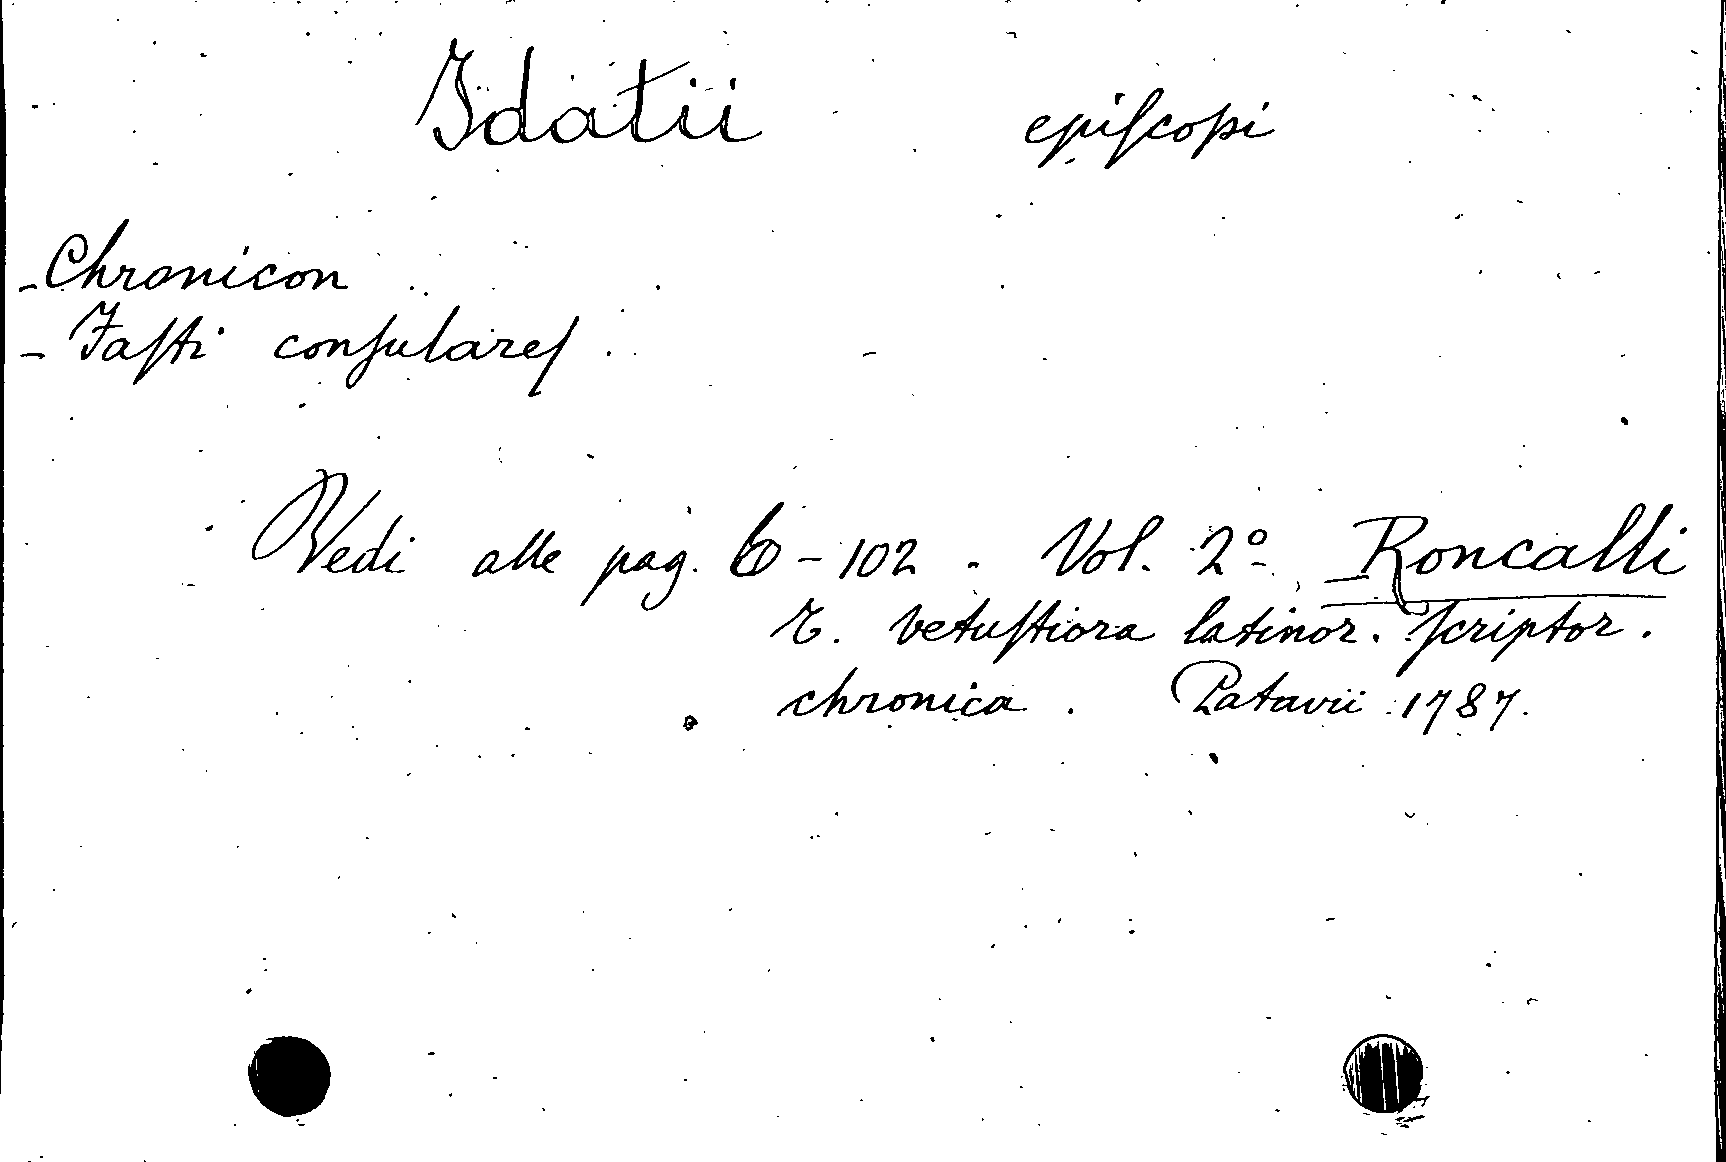 Idatii episcopi
- Chronicon
- Fasti consulares
Vedi alle pag. 6-102 - Vol. 2º Roncalli
T. vetustiora latinor. scriptor.
chronica. Patavii 1787.